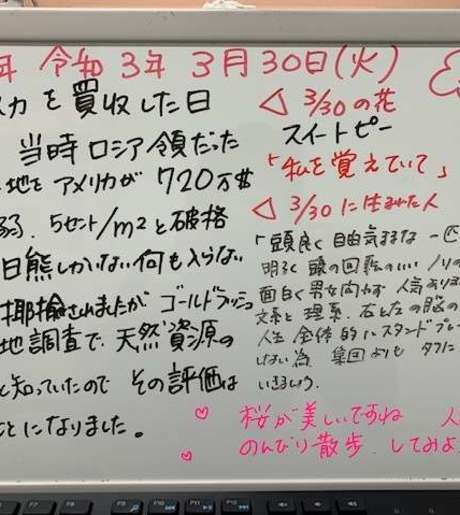 年 令和3年 3月30日(火)
カを買収した日
当時ロシア領だった
地をアメリカが720万
弱.5セント/m2と破格
白熊しかいない何も入らない
揶揄されましたがゴールドラッシュ
地調査で、天然資源の
と知っていたので その評価は
ことになりました。
◁ 3/30の花
スイートピー
「私を覚えていて」
◁ 3/30に生まれた人
「頭良く自由気ままな一匹
明るく頭の回転のいいノリの
面白く男女問わず人気あります
文系と理系.右と左の脳の
人生全体的にスタンドプレー
しない為 集団よりも
♡ 桜が美しいですね 人
♡ のんびり散歩.してみよ
F7 F8 F9 F10 F11 F12